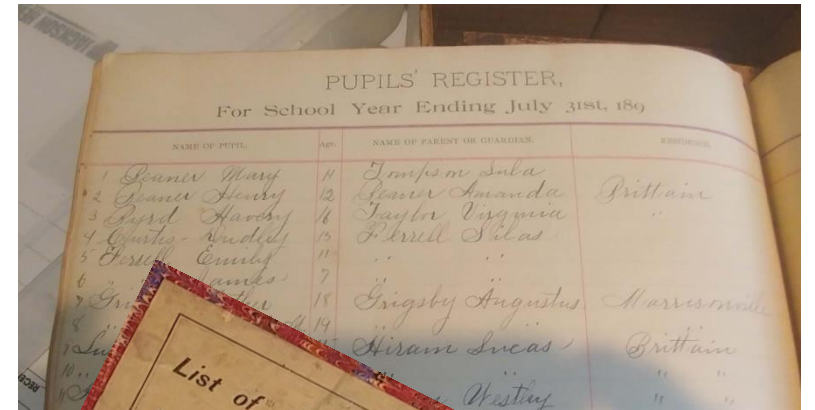 PUPILS' REGISTER,
For School Year Ending July 31st, 189
NAME OF PUPIL. Age. NAME OF PARENT OR GUARDIAN. RESIDENCE.
1 Beaner Mary 11 Tompson Lula
2 Beaner Henry 12 Beaner Amanda Brittain
3 Byrd Havery 16 Taylor Virginia "
4 Curtis Dudley 13 Ferrell Silas
5 Ferrell Emily 11 " "
6 James 7 " "
7 18 Grigsby Augustus Morrisonville
8 19 " " "
Hiram Lucas Brittain
10 " " " "
Westley " "
List of
JACKSON